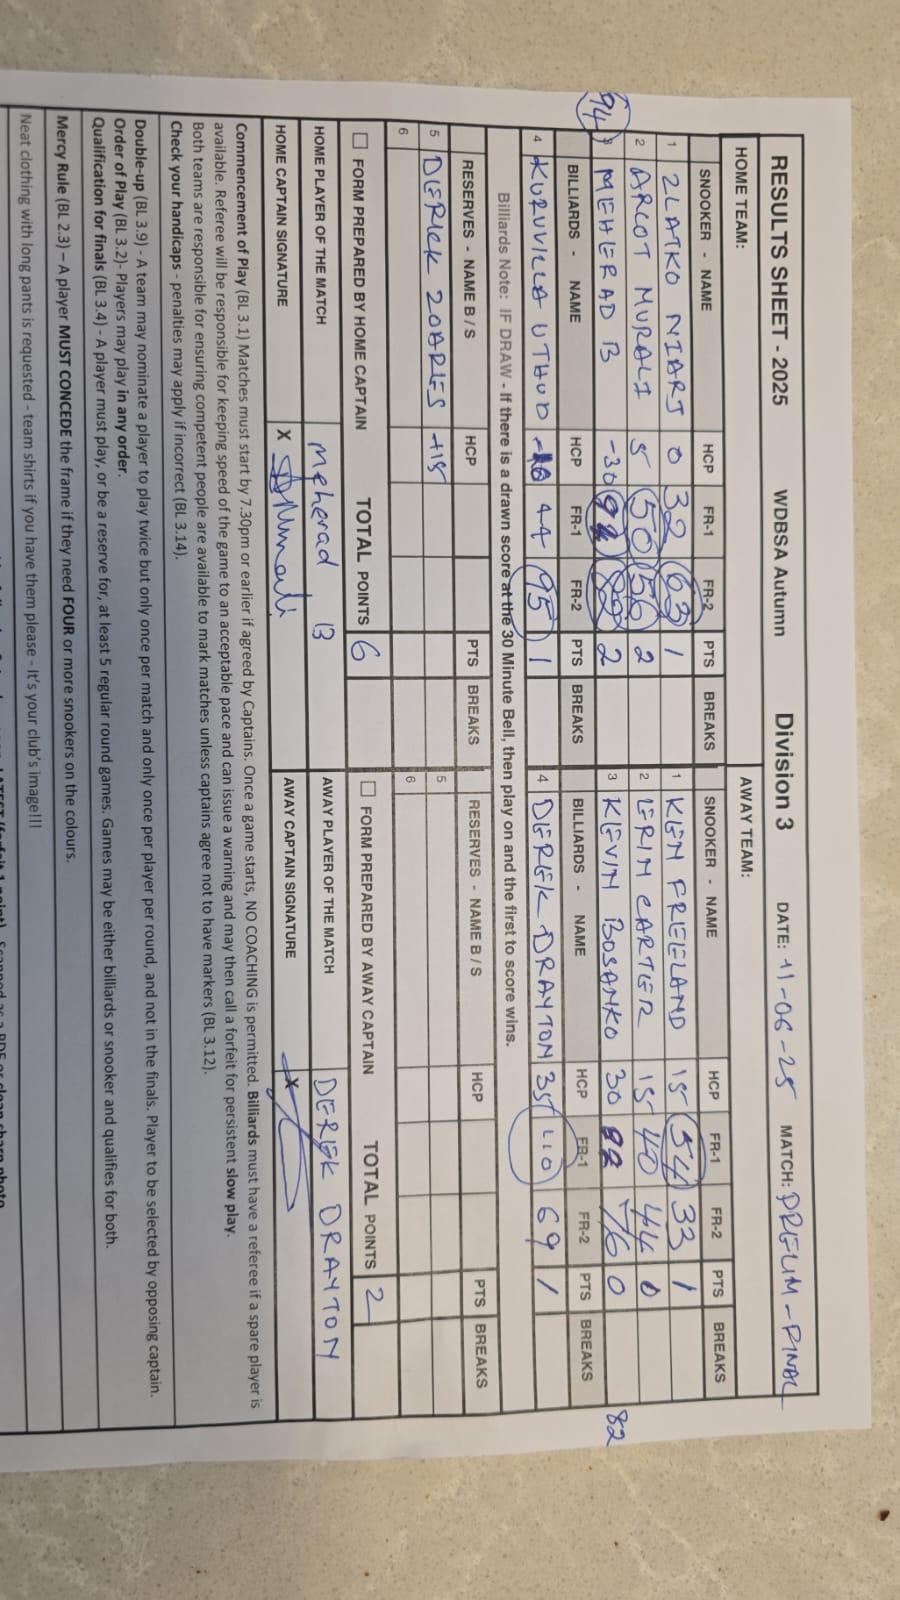 RESULTS SHEET - 2025 WDBSA Autumn Division 3 DATE: 11-06-25 MATCH: PRELIM-FINAL
HOME TEAM: AWAY TEAM:
SNOOKER - NAME HCP FR-1 FR-2 PTS BREAKS SNOOKER - NAME HCP FR-1 FR-2 PTS BREAKS
1 ZLATKO NIART 0 32 63 1 1 KEN FREELAND 15 54 33 1
2 ARCOT MURALI 5 50 56 2 2 ERIM CARTER 15 40 44 0
94 3 MEHERAD B -30 2 3 KEVIN BOSANKO 30 82 76 0 82
BILLIARDS - NAME HCP FR-1 FR-2 PTS BREAKS BILLIARDS - NAME HCP FR-1 FR-2 PTS BREAKS
4 KURUVILLA UTHUP 44 95 1 4 DEREK DRAYTON 35 110 69 1
Billiards Note: IF DRAW - If there is a drawn score at the 30 Minute Bell, then play on and the first to score wins.
RESERVES - NAME B / S HCP PTS BREAKS RESERVES - NAME B / S HCP PTS BREAKS
5 DERICK ZOARIES +15 5
6 6
FORM PREPARED BY HOME CAPTAIN TOTAL POINTS 6 FORM PREPARED BY AWAY CAPTAIN TOTAL POINTS 2
HOME PLAYER OF THE MATCH Meherad B AWAY PLAYER OF THE MATCH DEREK DRAYTON
HOME CAPTAIN SIGNATURE X AWAY CAPTAIN SIGNATURE X
Commencement of Play (BL 3.1) Matches must start by 7.30pm or earlier if agreed by Captains. Once a game starts, NO COACHING is permitted. Billiards must have a referee if a spare player is
available. Referee will be responsible for keeping speed of the game to an acceptable pace and can issue a warning and may then call a forfeit for persistent slow play.
Both teams are responsible for ensuring competent people are available to mark matches unless captains agree not to have markers (BL 3.12).
Check your handicaps - penalties may apply if incorrect (BL 3.14).
Double-up (BL 3.9) - A team may nominate a player to play twice but only once per match and only once per player per round, and not in the finals. Player to be selected by opposing captain.
Order of Play (BL 3.2)- Players may play in any order.
Qualification for finals (BL 3.4) - A player must play, or be a reserve for, at least 5 regular round games. Games may be either billiards or snooker and qualifies for both.
Mercy Rule (BL 2.3) – A player MUST CONCEDE the frame if they need FOUR or more snookers on the colours.
Neat clothing with long pants is requested - team shirts if you have them please - It's your club's image!!!